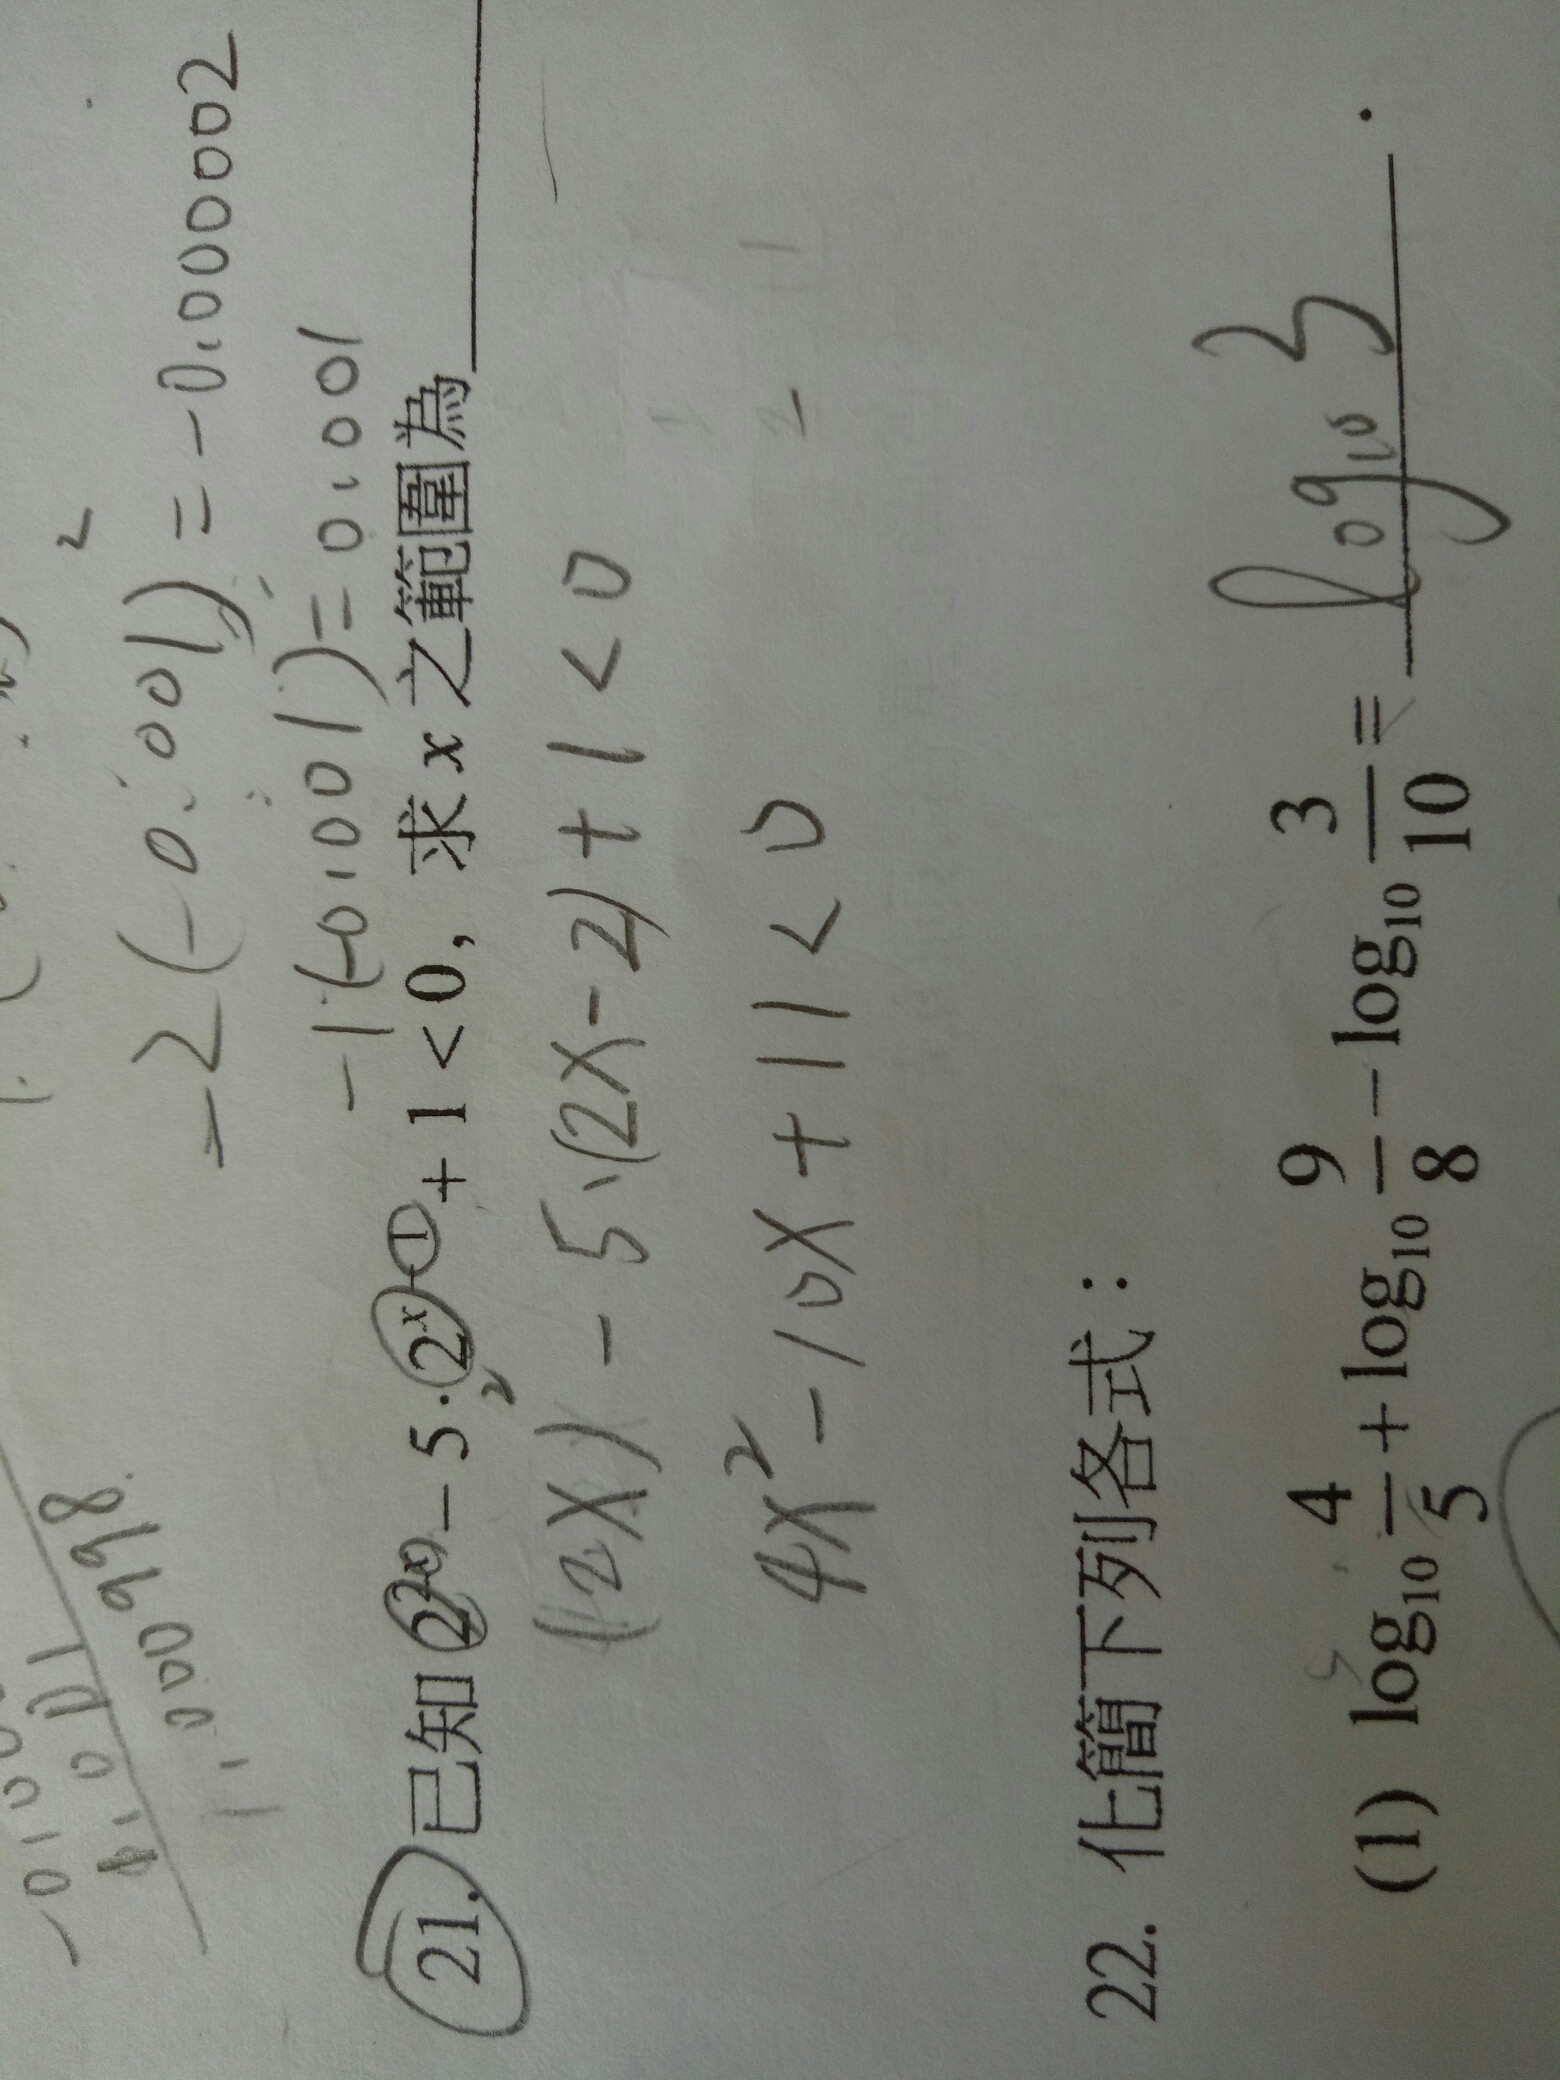 -2(-0.001)² = -0.000002
-1(-0.001) = 0.001
0.001
1.000998
21. 已知 2²ˣ - 5·2ˣ⁻¹ + 1 < 0, 求 x 之範圍為
(2X)² - 5·(2X-2) + 1 < 0
4X² - 10X + 11 < 0
22. 化簡下列各式:
(1) log₁₀ 4/5 + log₁₀ 9/8 - log₁₀ 3/10 = log₁₀ 3.